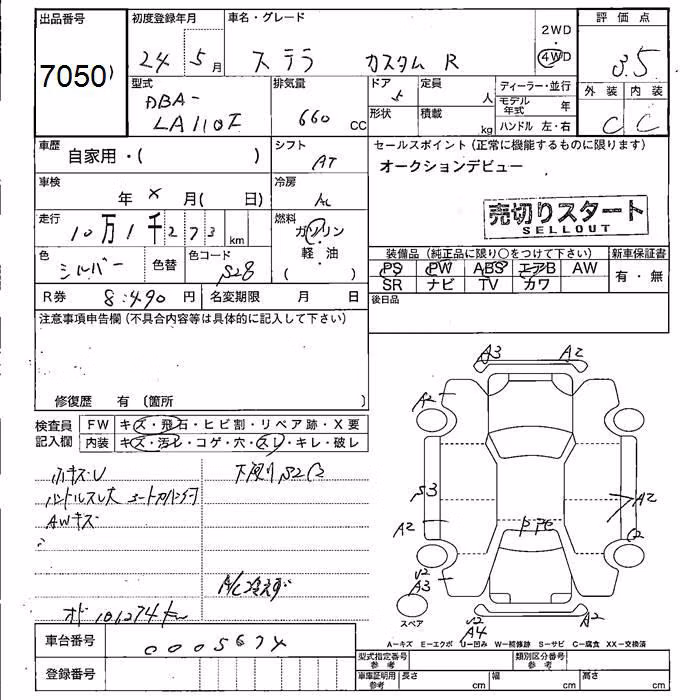 出品番号 初度登録年月 車名・グレード 2WD 評価点
7050 24 5月 ステラ カスタム R 4WD 3.5
型式 排気量 ドア 定員 ディーラー・並行 外装 内装
DBA- 5 人 モデル年式 年 C C
LA110F 660 CC 形状 積載 kg ハンドル 左・右
車歴 自家用・( ) シフト AT セールスポイント (正常に機能するものに限ります)
オークションデビュー
車検 年 × 月( 日) 冷房 AC
売切りスタート
SELLOUT
走行 10万1千273 km 燃料 ガソリン
軽・油
( )
色 シルバー 色替 色コード S28
装備品 (純正品に限り○をつけて下さい) 新車保証書
PS PW ABS エアB AW 有・無
SR ナビ TV カワ
R券 8,490 円 名変期限 月 日 後日品
注意事項申告欄 (不具合内容等は具体的に記入して下さい)
修復歴 有 (箇所 )
検査員記入欄 FW キズ・飛石・ヒビ割・リペア跡・X要
内装 キズ・汚レ・コゲ・穴・スレ・キレ・破レ
小キズU 下廻りS2C2
ハンドルスレ大
AWキズ
A/C冷えず
オド 101274km
A3 A2
A2
S3 A2
A2 P
C2
U2
A3
スペア
U2
A4 A2
A-キズ E-エクボ U-凹み W-補修跡 S-サビ C-腐食 XX-交換済
車台番号 0005674
登録番号
型式指定番号 参考 類別区分番号 参考
車庫証明用 参考 長さ cm 幅 cm 高さ cm